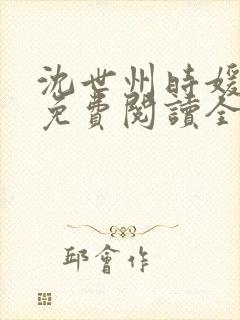 沈世州時媛
免費閱讀全
邱會作